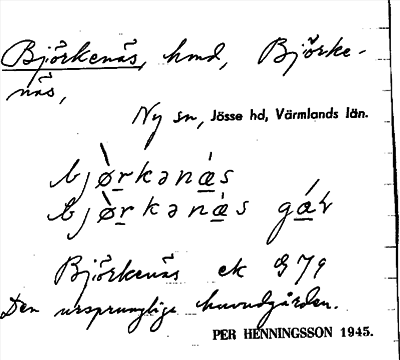 Björkenäs, hmd, Björke-
näs,
Ny sn, Jösse hd, Värmlands län.
bjø̀rkənǽs
bjø̀rkənæ̀s gáɽ
Björkenäs ek G 79
Den ursprungliga huvudgården.
PER HENNINGSSON 1945.